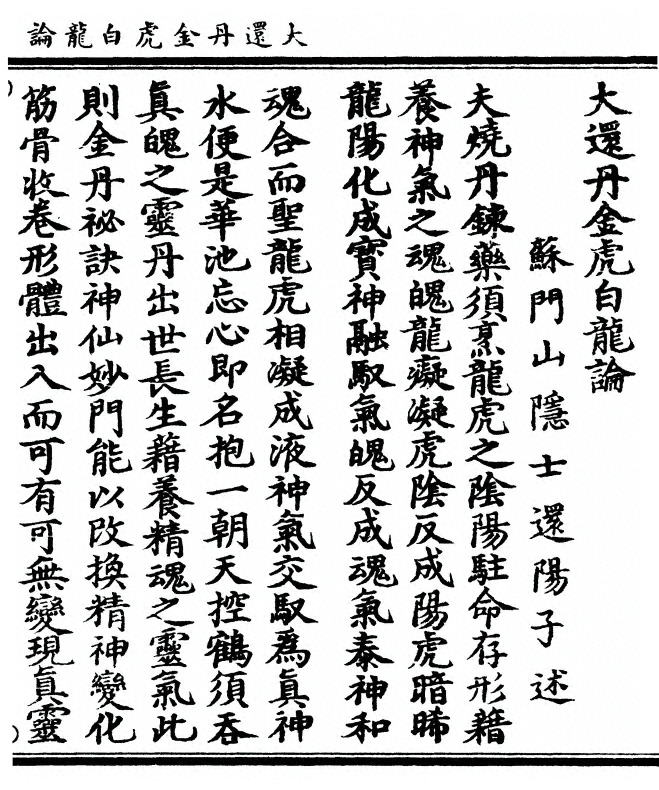 大還丹金虎白龍論
大還丹金虎白龍論
蘇門山隱士還陽子述
夫燒丹鍊藥須烹龍虎之陰陽駐命存形藉
養神氣之魂魄龍凝凝虎陰反成陽虎暗晞
龍陽化成寳神融馭氣魄反成魂氣泰神和
魂合而聖龍虎相凝成液神氣交馭爲真神
水便是華池忘心即名抱一朝天控鶴須吞
真魄之靈丹出世長生藉養精魂之靈氣此
則金丹祕訣神仙妙門能以改換精神變化
筋骨收卷形體出入而可有可無變現真靈